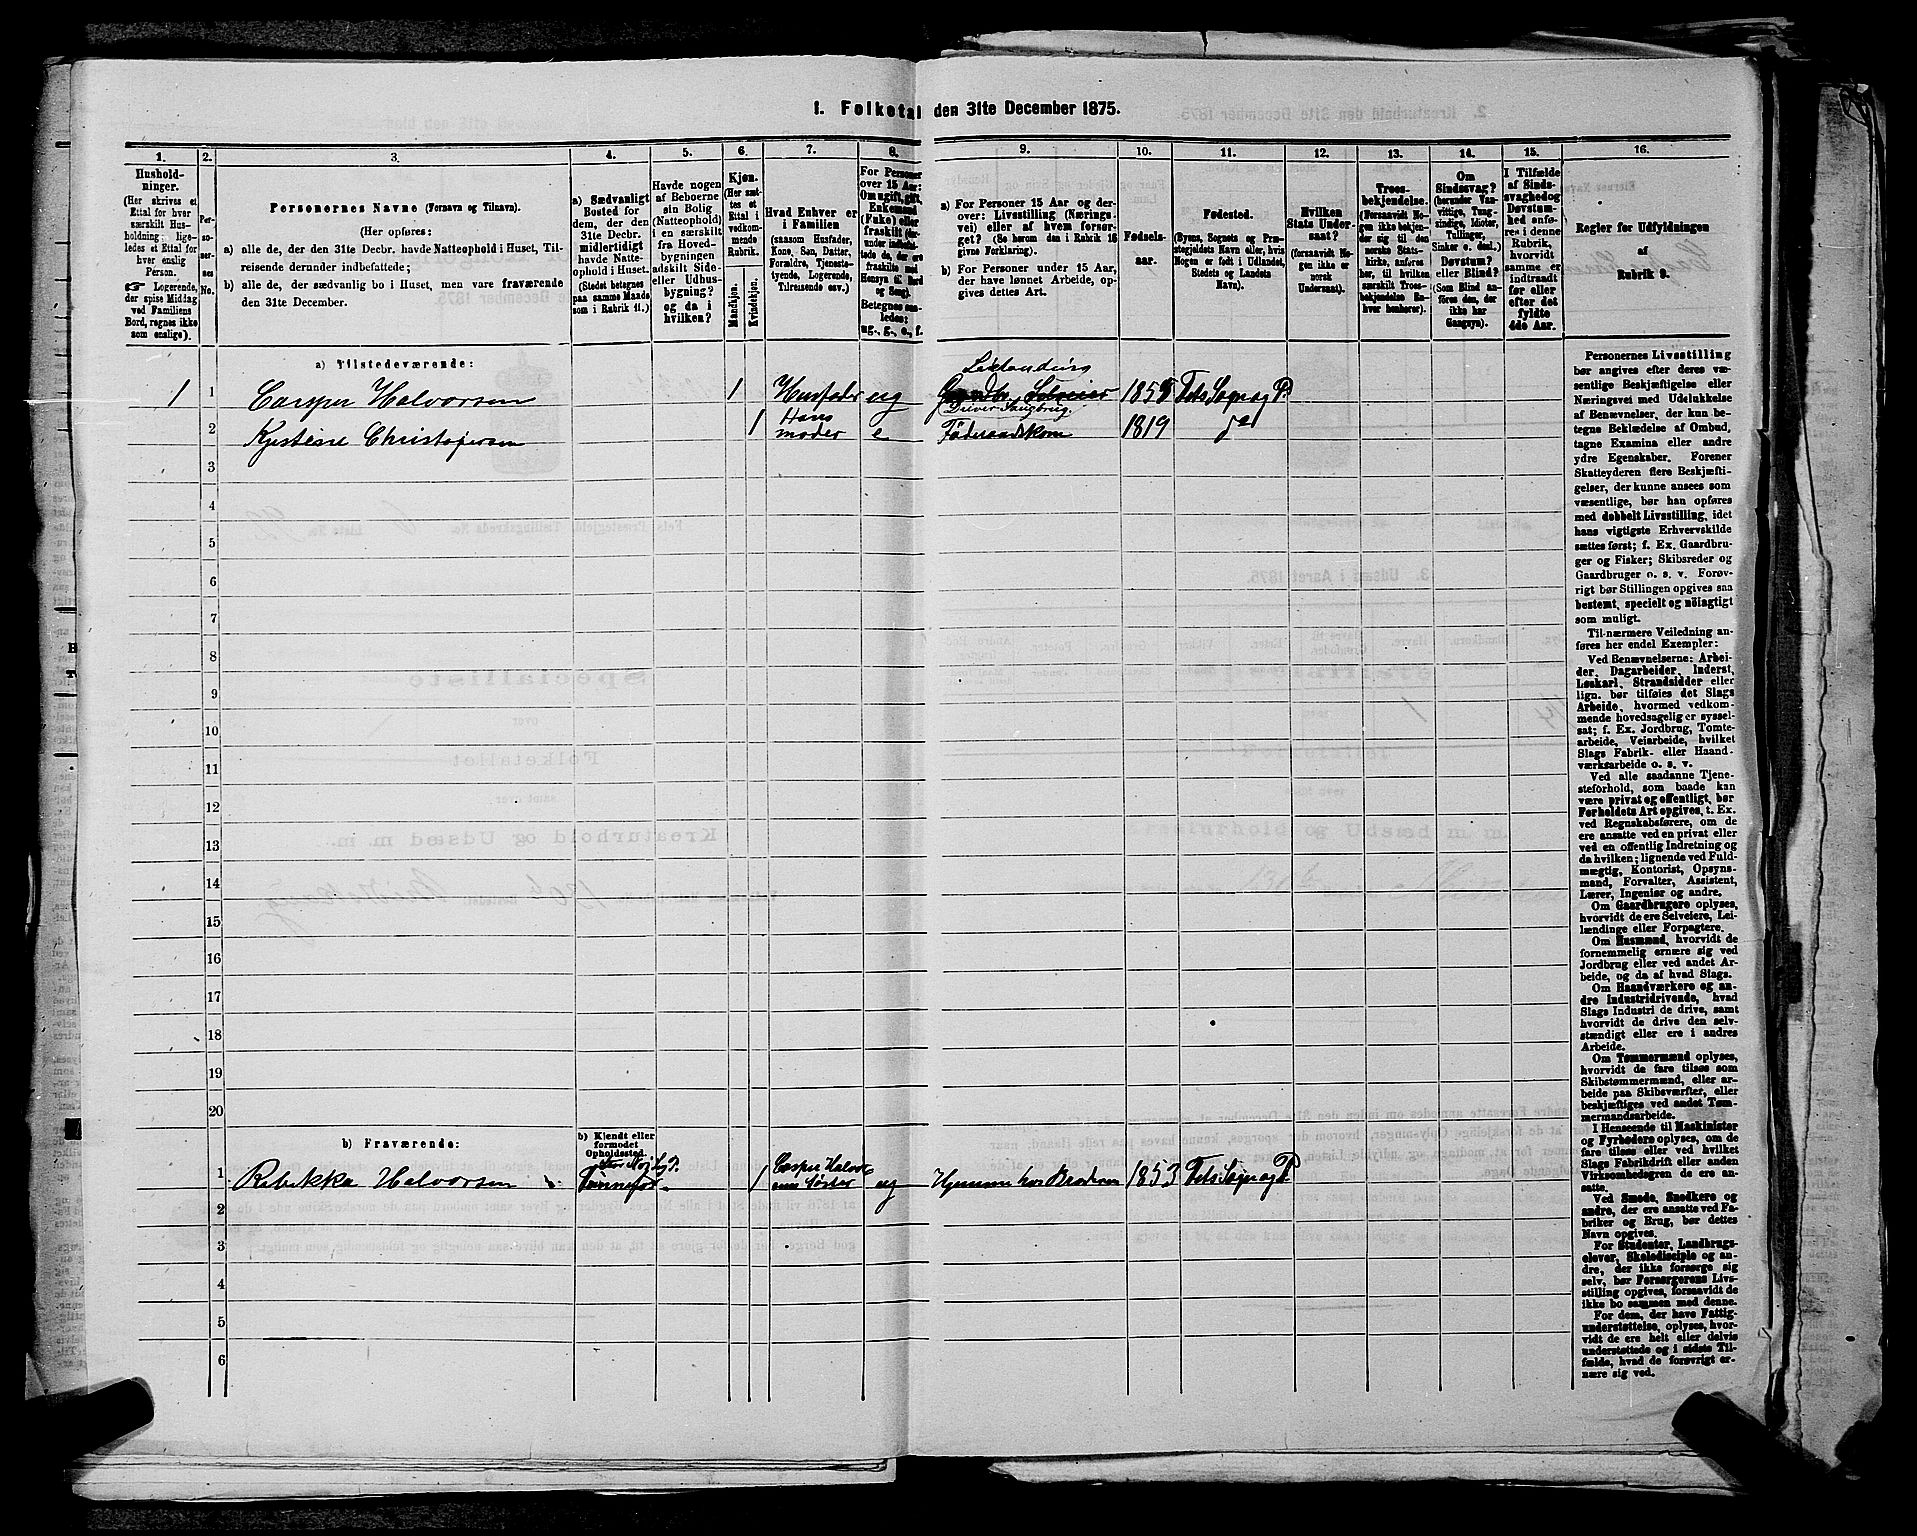 1. Folketal den 31te December 1875.
1. 2. 3. 4. 5. 6. 7. 8. 9. 10. 11. 12. 13. 14. 15. 16.
Hushold-
ninger.
(Her skrives et
Ettal for hver
særskilt Hus-
holdning; lige-
ledes et Ettal for
hver enslig
Person.
☞ Logerende,
der spise Middag
ved Familiens
Bord, regnes ikke
som enslige).
Per-
so-
ner-
nes
No.
Personernes Navne (Fornavn og Tilnavn).
(Her opføres:
a) alle de, der den 31te Decbr. havde Natteophold i Huset, Til-
reisende derunder indbefattede;
b) alle de, der sædvanlig bo i Huset, men vare fraværende
den 31te December.
a) Sædvanligt
Bosted for
dem, der den
31te Decbr.
midlertidigt
havde Natte-
ophold i Huset.
(Stedet betegnes
paa samme Maade
som i Rubrik 11.)
Havde nogen
af Beboerne
sin Bolig
(Natteophold)
i en særskilt
fra Hoved-
bygningen
adskilt Side-
eller Udhus-
bygning?
og da i
hvilken?
Kjøn.
(Her sæt-
tes et
Ettal i
vedkom-
mende
Rubrik.
Mandkjøn.
Kvindekjøn.
Hvad Enhver er
i Familien
(saasom Husfader,
Kone, Søn, Datter,
Forældre, Tjeneste-
tyende, Logerende,
Tilreisende osv.)
For Personer
over 15 Aar:
Om ugift, gift,
Enkemand
(Enke) eller
fraskilt
Betegnes saa-
ledes:
ug., g., e., f.
a) For Personer 15 Aar og der-
over: Livsstilling (Nærings-
vei) eller af hvem forsør-
get? (Se herom den i Rubrik 16
givne Forklaring).
b) For Personer under 15 Aar,
der have lønnet Arbeide, op-
gives dettes Art.
Fødsels-
aar.
Fødested.
(Byens, Sognets og Præ-
stegjeldets Navn eller, hvis
Nogen er født i Udlandet,
Stedets og Landets
Navn).
Hvilken
Stats Under-
saat?
(forsaavidt No-
gen ikke er
norsk
Undersaat).
Troes-
bekjendelse.
(Forsaavidt No-
gen ikke bekjen-
der sig til den
norske Stats-
kirke, anføres
her, til hvilken
særskilt Troes-
bekjendelse En-
hver henhører).
Om
Sindssvag?
(herunder Van-
vittige, Tung-
sindige, Idioter,
Tullinger,
Sinker o. desl.)
Døvstum?
eller Blind?
(Som Blind an-
føres den, der
ikke har
Gangsyn).
I Tilfælde
af Sinds-
svaghed og
Døvstum-
hed anfø-
res i denne
Rubrik,
hvorvidt
samme er
indtraadt
før eller
efter det
fyldte
4de Aar.
Regler for Udfyldningen
af
Rubrik 9.
a) Tilstedeværende:
1 1 Casper Halvorsen 1 Husfader ug Selveier 1855 Fets Sogn og P.
2 Kjestine Christophersen 1 Hans
moder e Føderaadskone 1819 do
3
4
5
6
7
8
9
10
11
12
13
14
15
16
17
18
19
20
b) Fraværende:
b) Kjendt eller
formodet
Opholdssted.
1 Rebekka Halvorsen 1 Casper Halvor-
sens Søster ug Hjemme hos Broderen 1853 Fets Sogn og P.
2
3
4
5
6
Personernes Livsstilling
bør angives efter deres væ-
sentlige Beskjæftigelse eller
Næringsvei med Udelukkelse
af Benævnelser, der kun be-
tegne Beklædelse af Ombud,
tagne Examina eller andre
ydre Egenskaber. Forener
Skatteyderen flere Beskjæfti-
gelser, der kunne ansees som
væsentlige, bør han opføres
med dobbelt Livsstilling, idet
hans vigtigste Erhvervskilde
sættes først; f. Ex. Gaardbru-
ger og Fisker; Skibsreder og
Gaardbruger o. s. v. Forøv-
rigt bør Stillingen opgives saa
bestemt, specielt og nøiagtigt
som muligt.
Til nærmere Veiledning an-
føres her endel Exempler:
Ved Benævnelserne: Arbei-
der, Dagarbeider, Inderst,
Løskarl, Strandsidder eller
lign. bør tilføies det Slags
Arbeide, hvormed vedkom-
mende hovedsagelig er syssel-
sat; f. Ex. Jordbrug, Tomte-
arbeide, Veiarbeide, hvilket
Slags Fabrik- eller Haand-
værksarbeide o. s. v.
Ved alle saadanne Tjene-
steforhold, som baade kan
være privat og offentligt, bør
Forholdets Art opgives, t. Ex.
ved Regnskabsførere, om de
ere ansatte ved en privat eller
ved en offentlig Indretning og
da hvilken; lignende ved Fuld-
mægtig, Kontorist, Opsyns-
mand, Forvalter, Assistent,
Lærer, Ingeniør og andre.
Om Gaardbrugere oplyses,
hvorvidt de ere Selveiere, Lei-
lændinge eller Forpagtere.
Om Husmænd, hvorvidt de
fornemmelig ernære sig ved
Jordbrug eller ved andet Ar-
beide, og da af hvad Slags.
Om Haandværkere og an-
dre Industridrivende, hvad
Slags Industri de drive, samt
hvorvidt de drive den selv-
stændigt eller ere i andres
Arbeide.
Om Tømmermænd oplyses,
hvorvidt de fare tilsøs som
Skibstømmermænd, eller ar-
beide paa Skibsværfter, eller
beskjæftiges ved andet Tøm-
mermandsarbeide.
I Henseende til Maskinister
og Fyrbødere oplyses, om de
fare tilsøs eller ved hvilket
Slags Fabrikdrift eller anden
Virksomhed de ere an-
satte.
Ved Smede, Snedkere og
andre, der ere ansatte ved Fa-
briker og Brug, bør dettes
Navn opgives.
For Studenter, Landbrugs-
elever, Skoledisciple og an-
dre, der ikke forsørge sig
selv, bør Forsørgerens Livs-
stilling opgives, forsaavidt de
ikke bo sammen med denne.
For dem, der have Fattig-
understøttelse, oplyses, hvor-
vidt de ere helt eller delvis
understøttede og i sidste Til-
fælde, hvad de forøvrigt er-
nære sig ved.